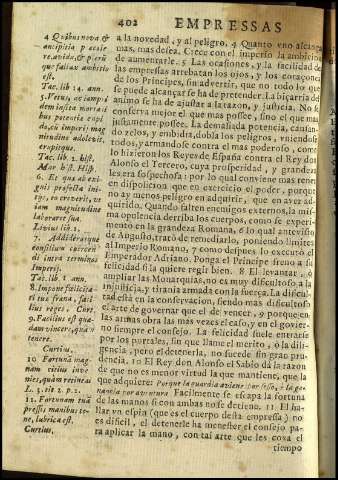 402 EMPRESSAS
4 Quibus nova &
ancipitia p acole
re, avida, & plerũ
que fallax ambitio
est.
Tac. lib 14. ann.
5. Vetus, ac iampri
dem insita mortali
bus potentiæ cupi
do, cũ imperij mag
nitudine adolevit,
erupitque.
Tac. lib. 2. hist.
Mar hist. Hisp.
6. Et quæ ab exi
gnis profecta ini-
tijs, eo creverit, ut
iam magnitudine
laboret sua.
Livius lib. 1.
7. Addideratque
consilium coercẽ
di intra terminos
Imperij.
Tac. lib. 1 ann.
8. Impone felicita
ti tuæ frana, faci
lius reges. Curt.
9. Facilius est quæ
dam vincer, quàm
tenere.
Curtius.
10 Fortunã mag
nam citius inve
nies, quàm retineas
L. 3. tit 3. p. 2.
11. Fortunam tuã
pressis manibus te-
ne, lubrica est.
Curtius.
a la novedad, y al peligro. 4 Quanto uno alcança
mas, mas desea. Crece con el imperio la ambicion
de aumentarle. 5 Las ocasiones, y la facilidad de
las empresas arrebatan los ojos, y los coraçones
de los Principes, sin advertir, que no todo lo que
se puede alcançar se ha de pretender. La biçarria del
animo se ha de ajustar a la razon, y justicia. No se
conserva mejor el que mas possee, sino el que mas
justamente possee. La demasiada potencia, causan-
do zelos, y embidia, dobla los peligros, vniendose
todos, y armandose contra el mas poderoso, como
lo hizieron los Reyes de España contra el Rey don
Alonso el Tercero, cuya prosperidad, y grandeza
les era sospechosa: por lo qual conviene mas tener
en disposicion que en exercicio el poder, porque
no ay menos peligro en adquirir, que en aver ad-
quirido. Quando falten enemigos externos, la mis-
ma opulencia derriba los cuerpos, como se experi-
mentò en la grandeza Romana, 6 lo qual antevisto
de Augusto, tratò de remediarlo, poniendo limites
al Imperio Romano, 7 como despues lo executò el
Emperador Adriano. Ponga el Principe freno a su
felicidad si la quiere regir bien. 8 El levantar, ò
ampliar las Monarquias, no es muy dificultoso a la
injusticia, y tirania armada con la fuerça. La dificul-
tad està en la conservacion, siendo mas dificultoso
el arte de governar que el de vencer, 9 porque en
las armas obra las mas vezes el caso, y en el govier-
no siempre el consejo. La felicidad suele entrarse
por los portales, sin que llame el merito, ò la dili-
gencia, pero el detenerla, no sucede sin gran pru-
dencia. 10 El Rey don Alonso el Sabio dà la razon
de que no es menor virtud la que mantiene, que la
que adquiere: Porque la guardia aviene por seso, è la ga-
nancia por aventura Facilmente se escapa la fortuna
de las manos si con ambas no se detiene. 11 El ha-
llar vn espin (que es el cuerpo desta empresa) no
es dificil, el detenerle ha menester el consejo pa-
ra aplicar la mano, con tal arte que les coxa el
tiempo